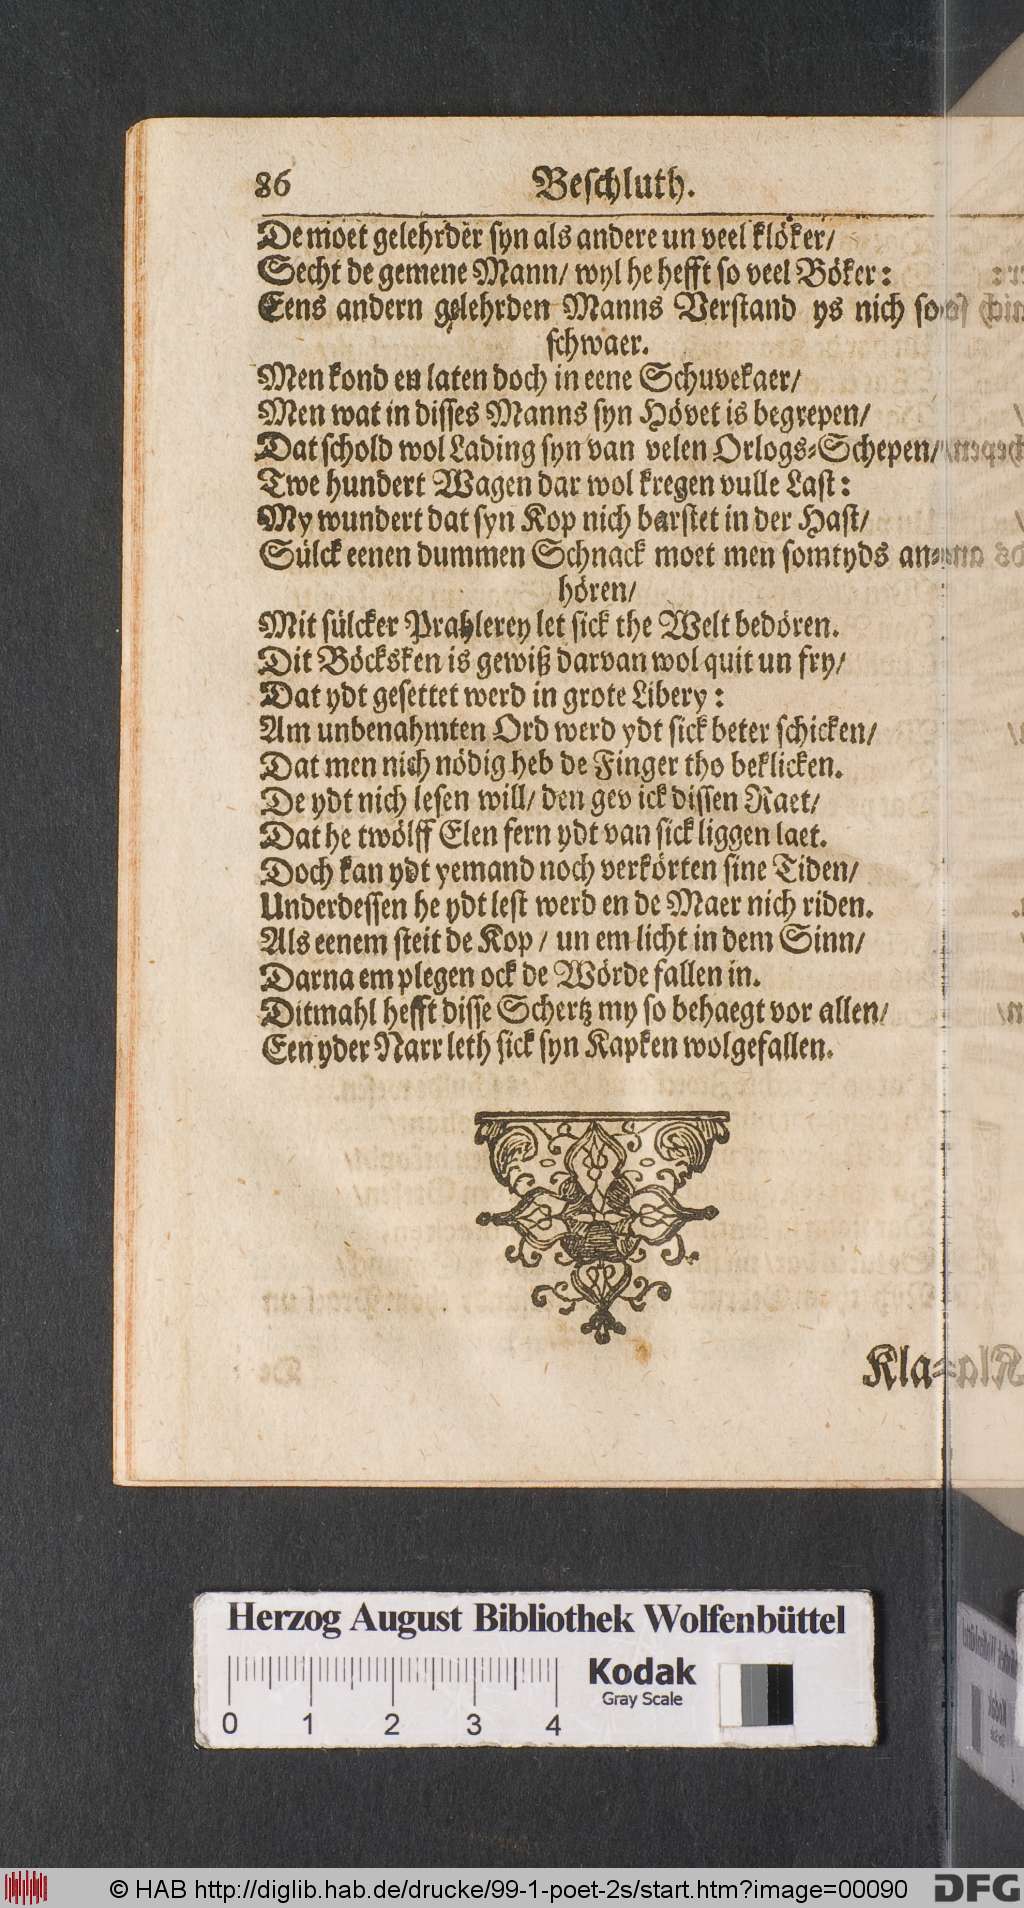 86 Beschluth.
De moet gelehrder syn als andere un veel klöker/
Secht de gemene Mann/ wyl he hefft so veel Böker:
Eens andern gelehrden Manns Verstand ys nich so
schwaer.
Men kond en laten doch in eene Schuvekaer/
Men wat in disses Manns syn Hövet is begrepen/
Dat schold wol Lading syn van velen Orlogs-Schepen/
Twe hundert Wagen dar wol kregen vulle Last:
My wundert dat syn Kop nich barstet in der Hast/
Sülck eenen dummen Schnack moet men somtyds an-
hören/
Mit sülcker Prahlerey let sick the Welt bedören.
Dit Böcksken is gewiß darvan wol quit un fry/
Dat ydt gesettet werd in grote Libery:
Am unbenahmten Ord werd ydt sick beter schicken/
Dat men nich nödig heb de Finger tho beklicken.
De ydt nich lesen will/ den gev ick dissen Raet/
Dat he twölff Elen fern ydt van sick liggen laet.
Doch kan ydt yemand noch verkörten sine Tiden/
Underdessen he ydt lest werd en de Maer nich riden.
Als eenem steit de Kop / un em licht in dem Sinn/
Darna em plegen ock de Wörde fallen in.
Ditmahl hefft disse Schertz my so behaegt vor allen/
Een yder Narr leth sick syn Kapken wolgefallen.
Kla-
Herzog August Bibliothek Wolfenbüttel
Kodak
Gray Scale
0 1 2 3 4
© HAB http://diglib.hab.de/drucke/99-1-poet-2s/start.htm?image=00090
DFG